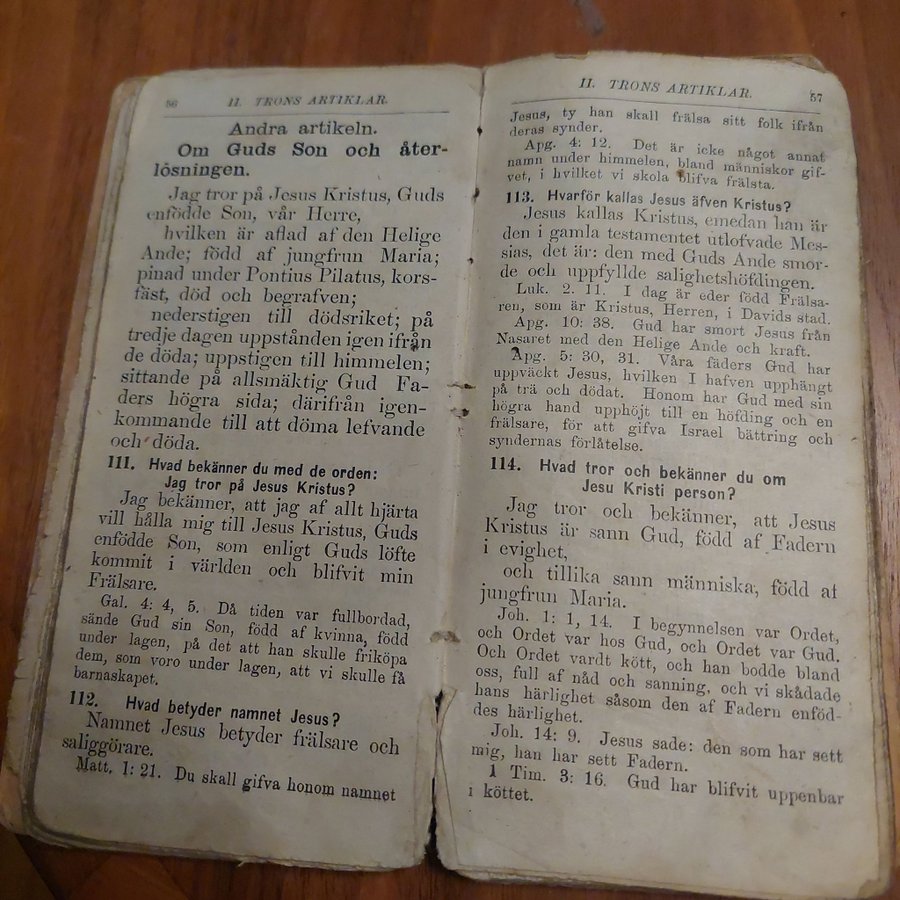 56 II. TRONS ARTIKLAR.
Andra artikeln.
Om Guds Son och åter-
lösningen.
Jag tror på Jesus Kristus, Guds
enfödde Son, vår Herre,
hvilken är aflad af den Helige
Ande; född af jungfrun Maria;
pinad under Pontius Pilatus, kors-
fäst, död och begrafven;
nederstigen till dödsriket; på
tredje dagen uppstånden igen ifrån
de döda; uppstigen till himmelen;
sittande på allsmäktig Gud Fa-
ders högra sida; därifrån igen-
kommande till att döma lefvande
och döda.
111. Hvad bekänner du med de orden:
Jag tror på Jesus Kristus?
Jag bekänner, att jag af allt hjärta
vill hålla mig till Jesus Kristus, Guds
enfödde Son, som enligt Guds löfte
kommit i världen och blifvit min
Frälsare.
Gal. 4: 4, 5. Då tiden var fullbordad,
sände Gud sin Son, född af kvinna, född
under lagen, på det att han skulle friköpa
dem, som voro under lagen, att vi skulle få
barnaskapet.
112. Hvad betyder namnet Jesus?
Namnet Jesus betyder frälsare och
saliggörare.
Matt. 1: 21. Du skall gifva honom namnet
II. TRONS ARTIKLAR. 57
Jesus, ty han skall frälsa sitt folk ifrån
deras synder.
Apg. 4: 12. Det är icke något annat
namn under himmelen, bland människor gif-
vet, i hvilket vi skola blifva frälsta.
113. Hvarför kallas Jesus äfven Kristus?
Jesus kallas Kristus, emedan han är
den i gamla testamentet utlofvade Mes-
sias, det är: den med Guds Ande smor-
de och uppfyllde salighetshöfdingen.
Luk. 2. 11. I dag är eder född Frälsa-
ren, som är Kristus, Herren, i Davids stad.
Apg. 10: 38. Gud har smort Jesus från
Nasaret med den Helige Ande och kraft.
Apg. 5: 30, 31. Våra fäders Gud har
uppväckt Jesus, hvilken I hafven upphängt
på trä och dödat. Honom har Gud med sin
högra hand upphöjt till en höfding och en
frälsare, för att gifva Israel bättring och
syndernas förlåtelse.
114. Hvad tror och bekänner du om
Jesu Kristi person?
Jag tror och bekänner, att Jesus
Kristus är sann Gud, född af Fadern
i evighet,
och tillika sann människa, född af
jungfrun Maria.
Joh. 1: 1, 14. I begynnelsen var Ordet,
och Ordet var hos Gud, och Ordet var Gud.
Och Ordet vardt kött, och han bodde bland
oss, full af nåd och sanning, och vi skådade
hans härlighet såsom den af Fadern enföd-
des härlighet.
Joh. 14: 9. Jesus sade: den som har sett
mig, han har sett Fadern.
1 Tim. 3: 16. Gud har blifvit uppenbar
i köttet.